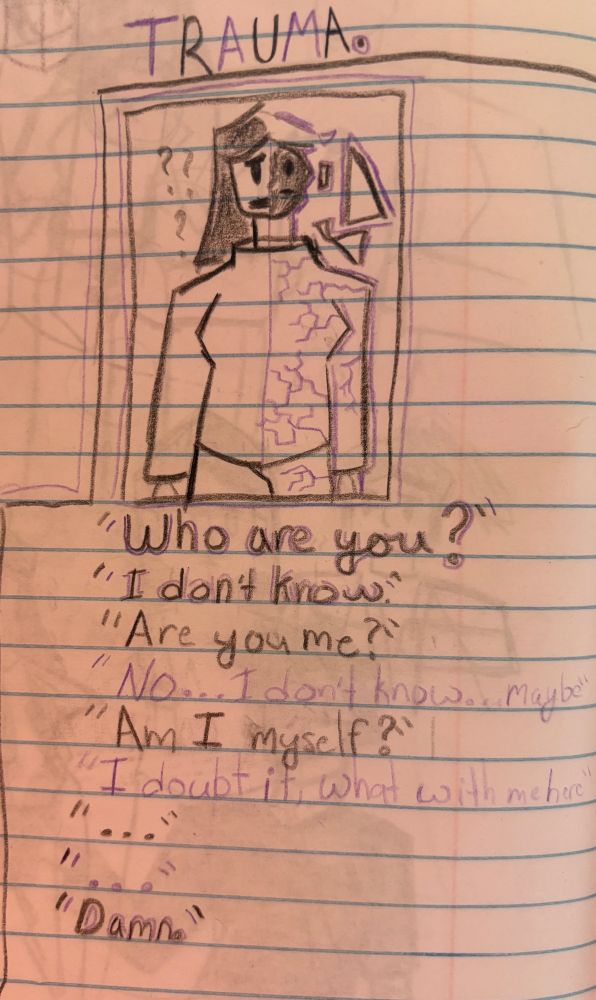 TRAUMA.
? ?
?
"Who are you?"
"I don't know."
"Are you me?"
"No...I don't know...maybe"
"Am I myself?"
"I doubt it, what with me here"
"..."
"..."
"Damn."